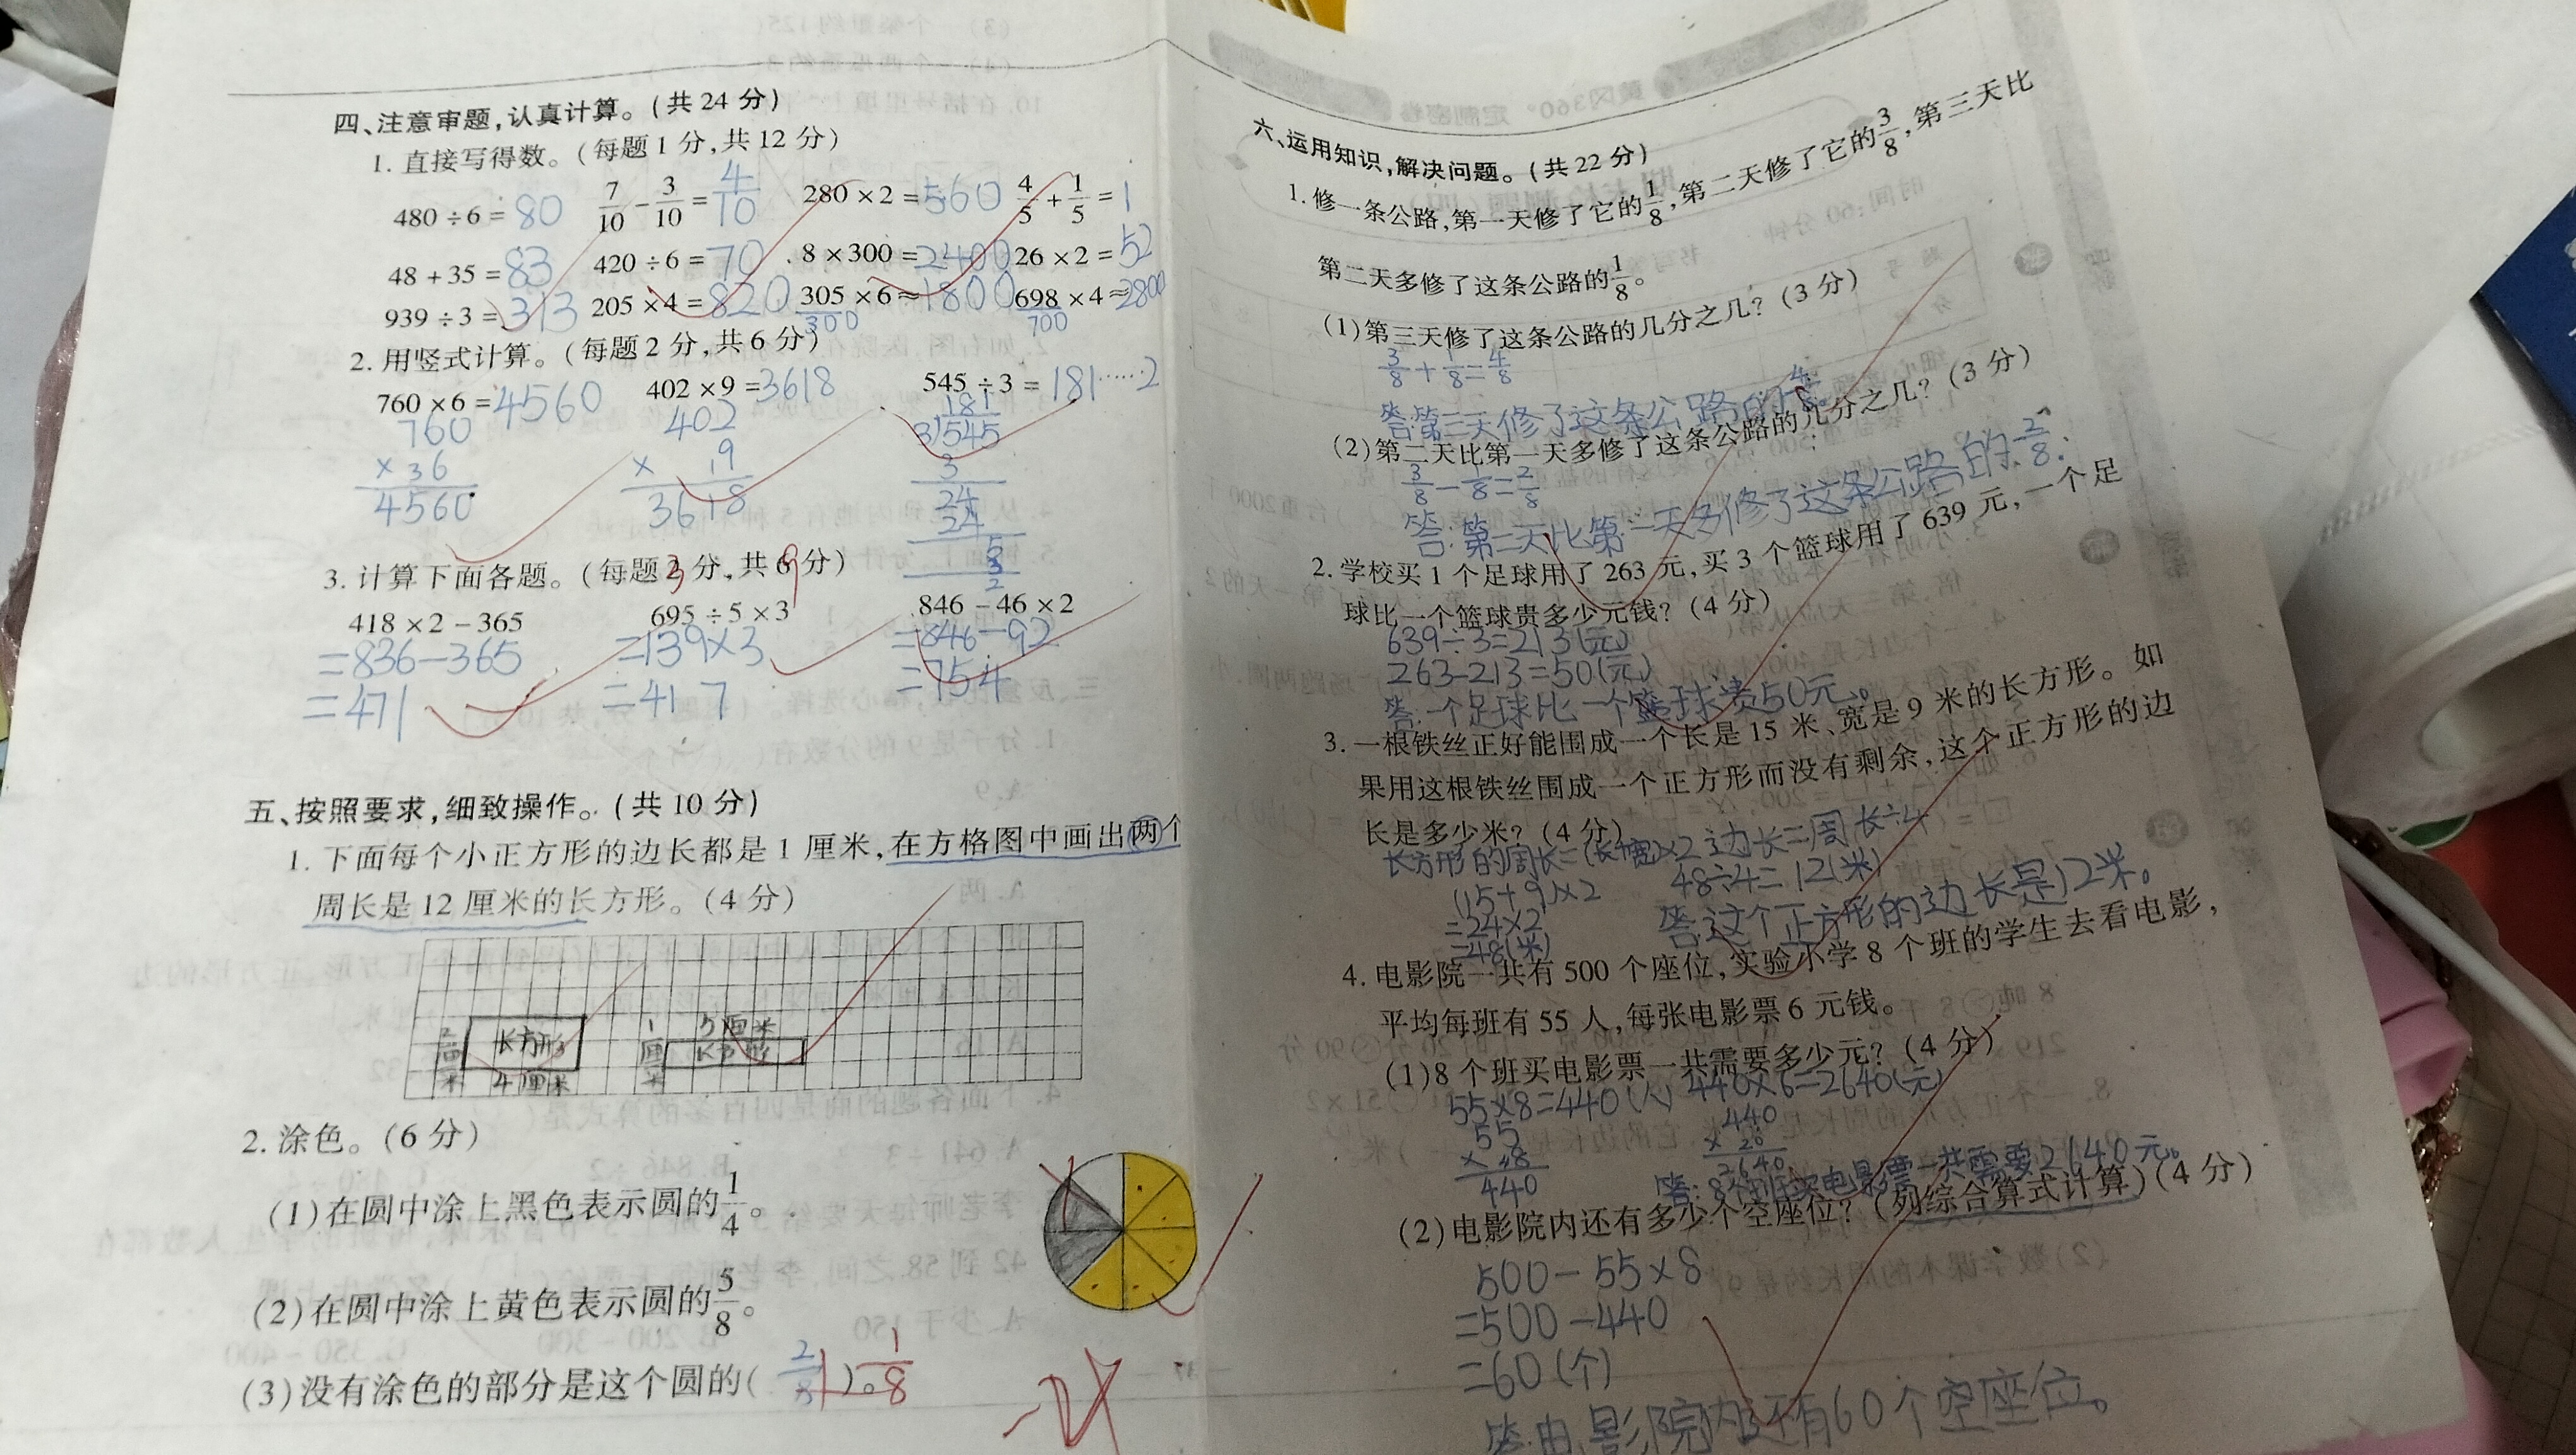 四、注意审题,认真计算。(共 24 分)
1. 直接写得数。(每题 1 分,共 12 分)
480 ÷ 6 = 80  7/10 - 3/10 = 4/10  280 × 2 = 560  4/5 + 1/5 = 1
48 + 35 = 83  420 ÷ 6 = 70  8 × 300 = 2400  26 × 2 = 52
939 ÷ 3 = 313  205 × 4 = 820  305 × 6 ≈ 1800  698 × 4 ≈ 2800
300  700
2. 用竖式计算。(每题 2 分,共 6 分)
760 × 6 = 4560  402 × 9 = 3618  545 ÷ 3 = 181……2
760  402  181
× 36  × 19  3)545
4560  3618  3
24
24
5
3
2
3. 计算下面各题。(每题 3 分,共 9 分)
418 × 2 - 365  695 ÷ 5 × 3  846 - 46 × 2
=836-365  =139×3  =846-92
=471  =417  =754
五、按照要求,细致操作。(共 10 分)
1. 下面每个小正方形的边长都是 1 厘米,在方格图中画出两个
周长是 12 厘米的长方形。(4 分)
2厘米 长方形 4厘米
1厘米 5厘米 长方形
2. 涂色。(6 分)
(1)在圆中涂上黑色表示圆的1/4。
(2)在圆中涂上黄色表示圆的5/8。
(3)没有涂色的部分是这个圆的( 2/8 )。1/8
六、运用知识,解决问题。(共 22 分)
1. 修一条公路,第一天修了它的1/8,第二天修了它的3/8,第三天比
第二天多修了这条公路的1/8。
(1)第三天修了这条公路的几分之几?(3 分)
3/8+1/8=4/8
答:第三天修了这条公路的4/8。
(2)第二天比第一天多修了这条公路的几分之几?(3 分)
3/8-1/8=2/8
答:第二天比第一天多修了这条公路的2/8.
2. 学校买 1 个足球用了 263 元,买 3 个篮球用了 639 元,一个足
球比一个篮球贵多少元钱?(4 分)
639÷3=213(元)
263-213=50(元)
答:一个足球比一个篮球贵50元。
3. 一根铁丝正好能围成一个长是 15 米、宽是 9 米的长方形。如
果用这根铁丝围成一个正方形而没有剩余,这个正方形的边
长是多少米?(4 分)
长方形的周长=(长+宽)×2 边长=周长÷4
(15+9)×2  48÷4=12(米)
=24×2  答:这个正方形的边长是12米。
=48(米)
4. 电影院一共有 500 个座位,实验小学 8 个班的学生去看电影,
平均每班有 55 人,每张电影票 6 元钱。
(1)8 个班买电影票一共需要多少元?(4 分)
55×8=440(人) 440×6=2640(元)
55  440
× 48
440  2640
答:8个班买电影票一共需要2640元。
(2)电影院内还有多少个空座位?(列综合算式计算)(4 分)
500-55×8
=500-440
=60(个)
答:电影院内还有60个空座位。